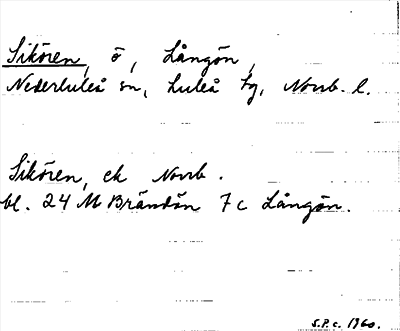 Sikören, ö, Långön,
Nederluleå sn, Luleå tg, Norrb. l.
Sikören, ek Norrb.
bl. 24 M Brändön 7c Långön.
S.P.C. 1960.